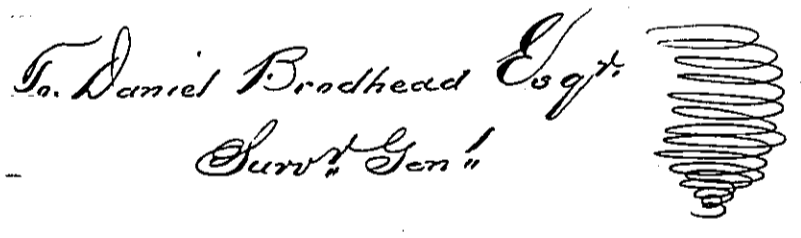 To. Daniel Brodhead Esqr.
Survr. Genl.